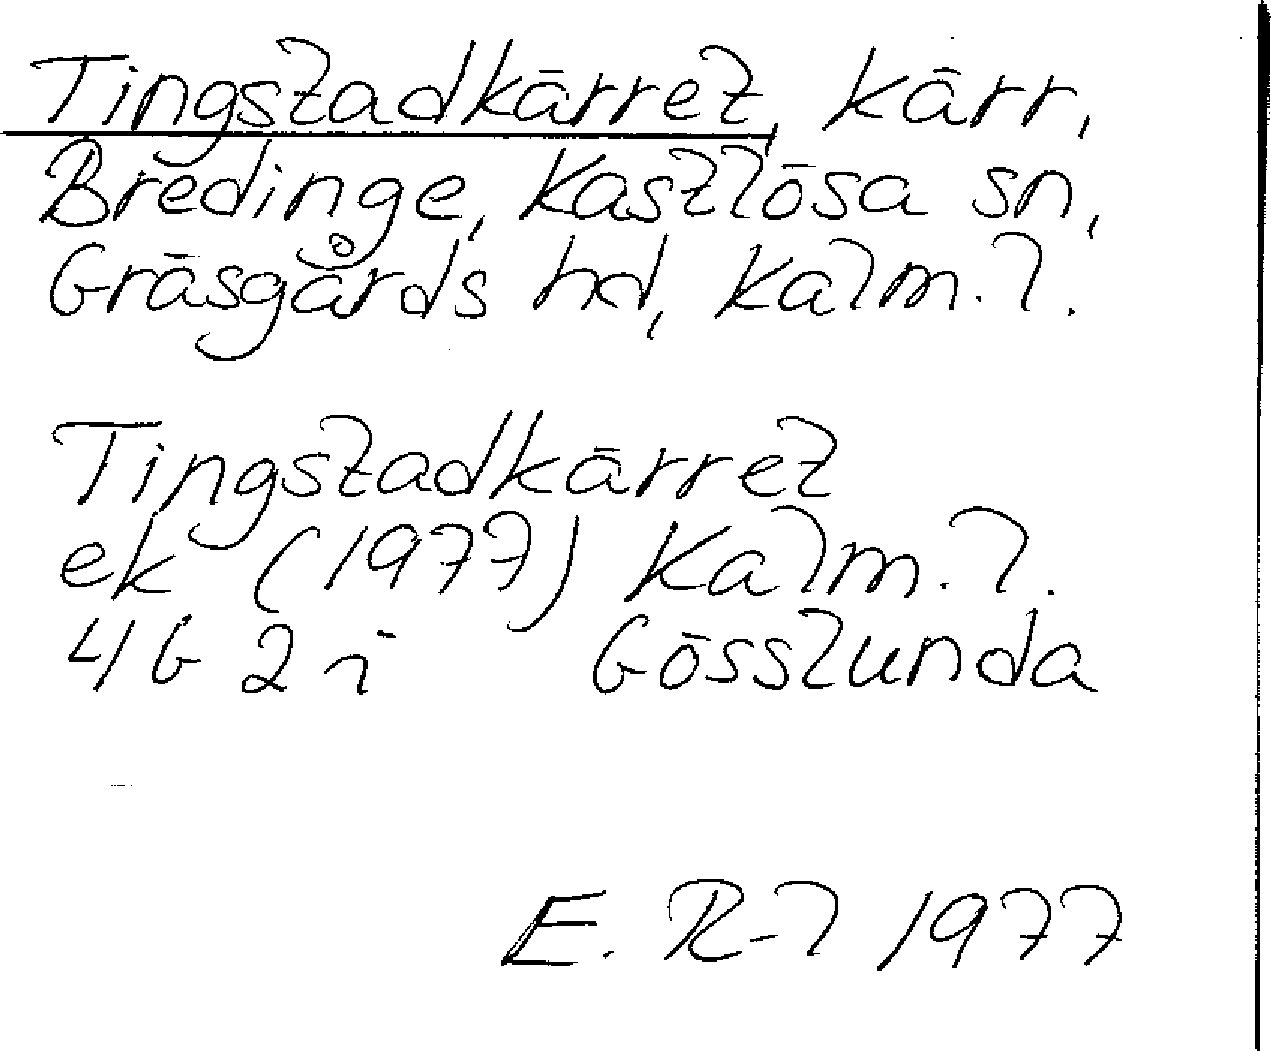 Tingstadkärret, kärr,
Bredinge, Kastlösa sn,
Gräsgårds hd, Kalm. l.
Tingstadkärret
ek (1977) Kalm. l.
4G 2i Gösslunda
E. R-l 1977